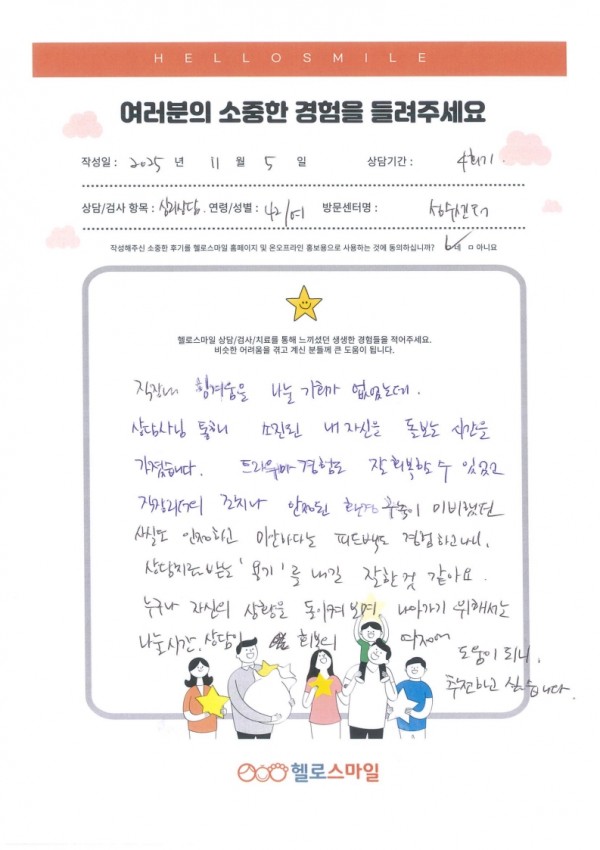 HELLOSMILE
여러분의 소중한 경험을 들려주세요
작성일 : 2025 년 11 월 5 일 상담기간 : 4회기.
상담/검사 항목 : 심리상담. 연령/성별 : 42/여 방문센터명 :
작성해주신 소중한 후기를 헬로스마일 홈페이지 및 온오프라인 홍보용으로 사용하는 것에 동의하십니까? 네 ㅁ 아니요
헬로스마일 상담/검사/치료를 통해 느끼셨던 생생한 경험들을 적어주세요.
비슷한 어려움을 겪고 계신 분들께 큰 도움이 됩니다.
직장내 힘겨움을 나눌 기회가 없었는데.
상담사님 통해 소진된 내 자신을 돌보는 시간을
가졌습니다. 트라우마 경험도 잘 회복할 수 있었고
직장리더의 조치나 안전된 환경 구축이 미비했던
사실도 인정하고 미안하다는 피드백도 경험하고나니,
상담치료 받는 '용기'를 내길 잘한 것 같아요.
누구나 자신의 상황을 돌이켜보며, 나아가기 위해서는
나눌시간. 상담이 회복의 여정에 도움이 되니,
추천하고 싶습니다.
헬로스마일